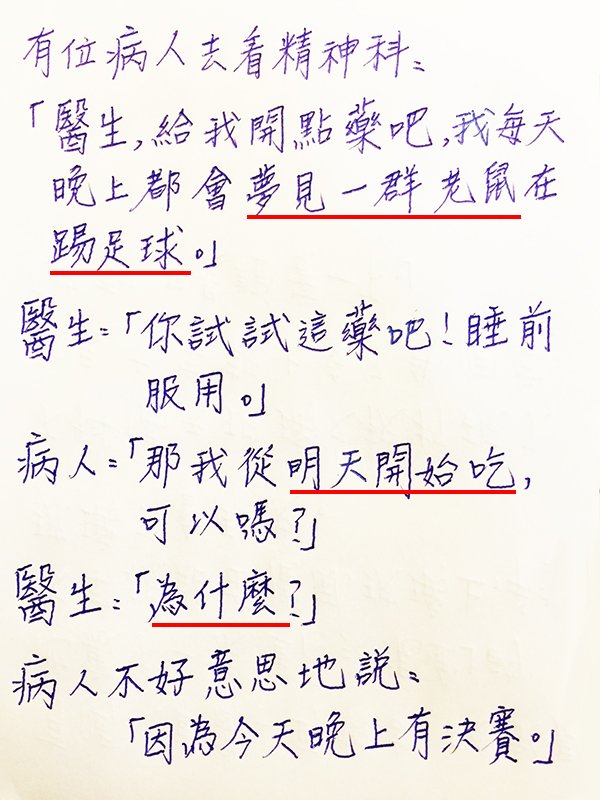 有位病人去看精神科：
「醫生,給我開點藥吧,我每天
晚上都會夢見一群老鼠在
踢足球。」
醫生：「你試試這藥吧！睡前
服用。」
病人：「那我從明天開始吃,
可以嗎？」
醫生：「為什麼？」
病人不好意思地說：
「因為今天晚上有決賽。」